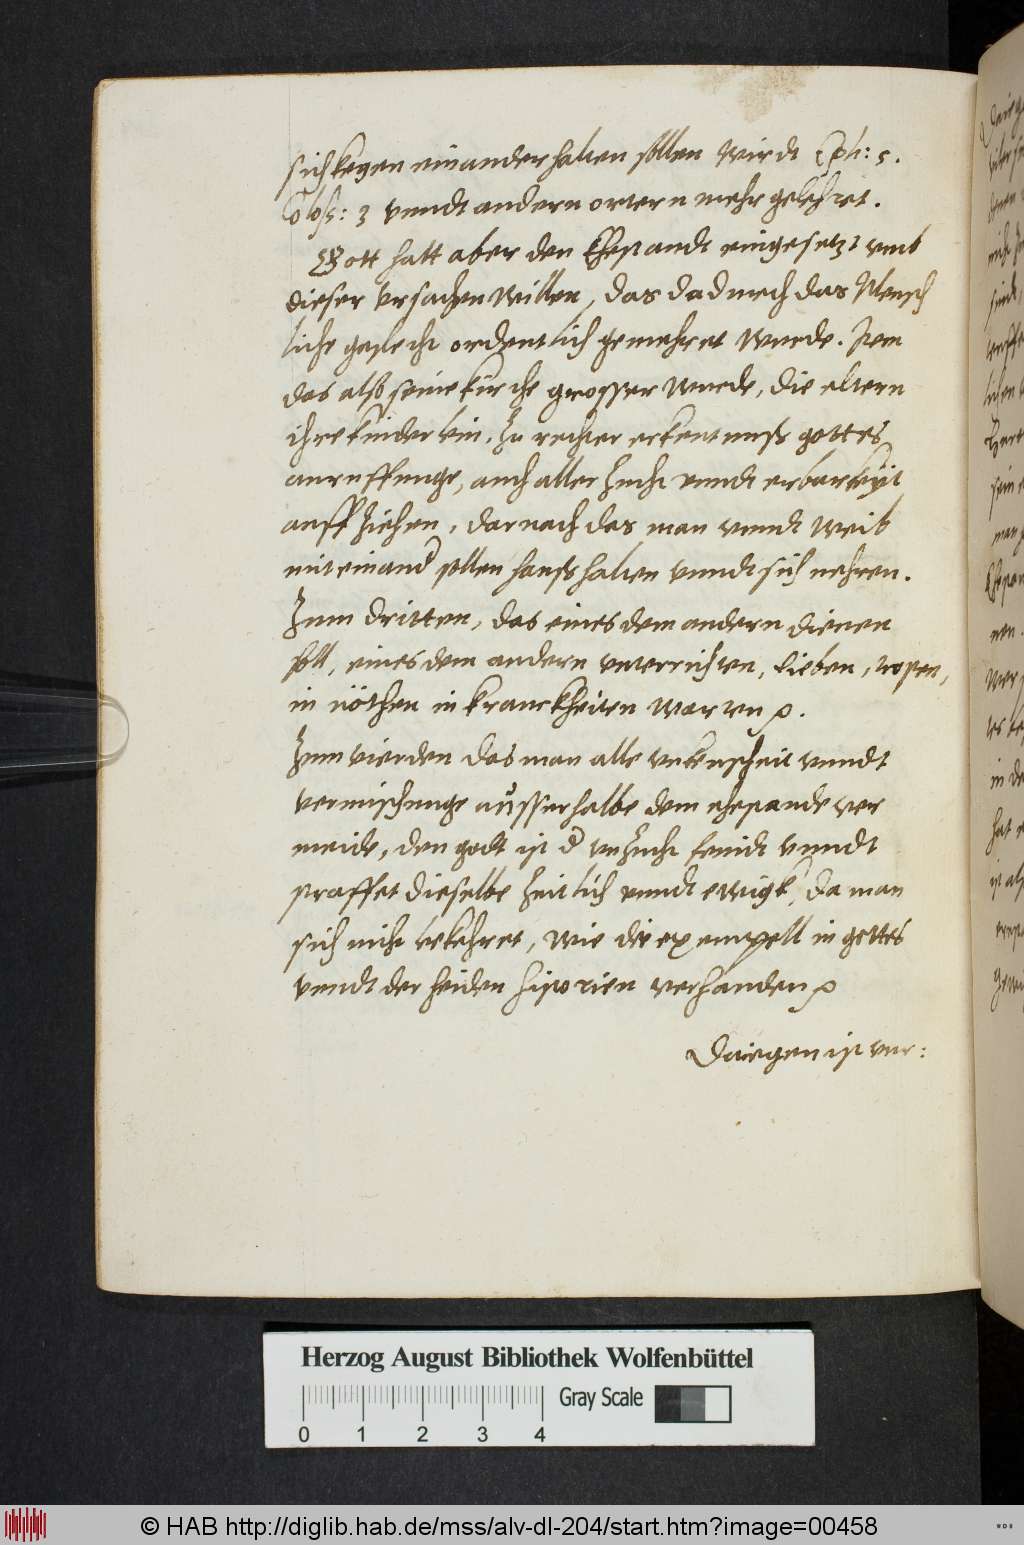 sich kegen einander halten sollen wirdt Eph: 5.
Coloss: 3 vnndt andern ortern mehr gelehret.
Gott hatt aber den Ehestandt eingesetzt vmb
dieser vrsachen willen, das dadurch das Mensch
liche geslecht ordentlich gemehret wurde. Item
das also seine kirche grosser wurde, die eltern
ihre kinder zu rechter erkentnuß gottes
anruffunge, auch aller zucht vnndt erbarkeyt
auff ziehen, darnach das man vnndt weib
mit einand sollen haußhalten vnndt sich nehren.
Zum dritten, das eines dem andern dienen
soll, eines dem andern vnterrichten, lieben, trosten,
in nöthen in kranckheiten warten
Zum vierden das man alle vnkenscheit vnndt
vermischunge ausserhalbe dem ehestande ver
meide, den godt ist d vnzucht feindt vnndt
straffet dieselbe zeitlich vnndt ewigk, da man
sich nicht bekehret, wie die exempell in gottes
vnndt der heiden historien verhanden
Daiegen ist ver:
Herzog August Bibliothek Wolfenbüttel
Gray Scale
0 1 2 3 4
© HAB http://diglib.hab.de/mss/alv-dl-204/start.htm?image=00458